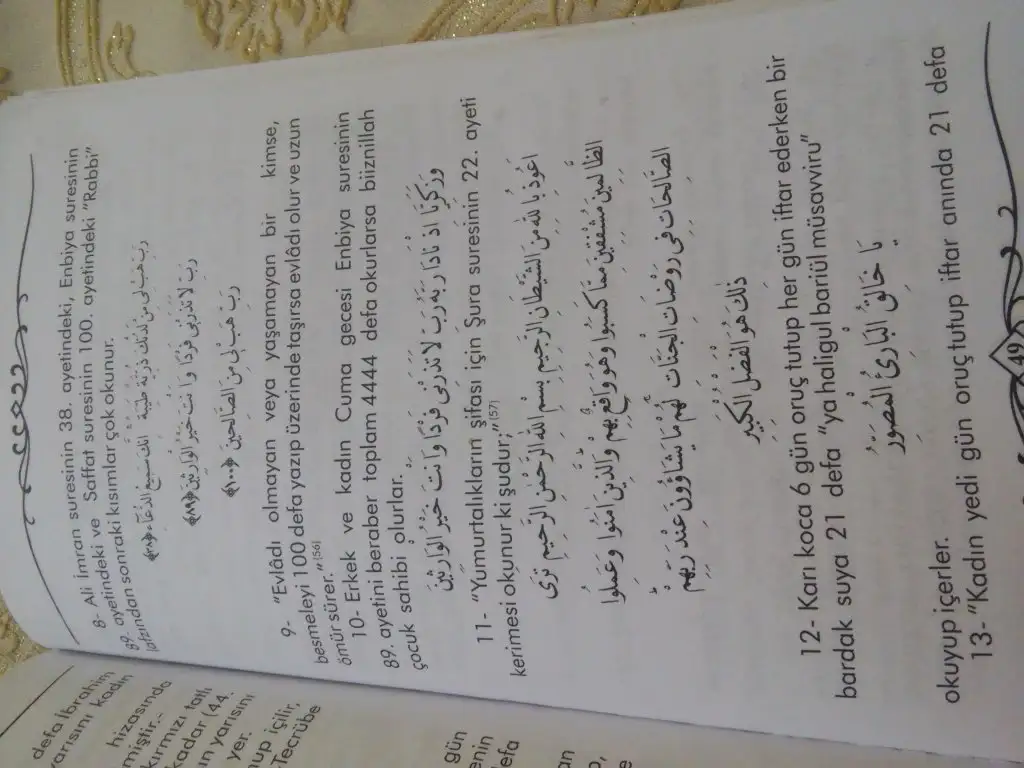 defa İbrahim
yarısını kadın
hizasında
miştir.-
kırmızı tatlı
kadar (44.
ın yarısını
yer.
nup içilir,
Tecrübe
gün
enin
defa
8- Ali İmran suresinin 38. ayetindeki, Enbiya suresinin
89- ayetindeki ve Saffat suresinin 100. ayetindeki "Rabbi"
lafzından sonraki kısımlar çok okunur.
رَبِّ هَبْ لِي مِنْ لَدُنْكَ ذُرِّيَّةً طَيِّبَةً اِنَّكَ سَمِيعُ الدُّعَاءِ ﴿٣٨﴾
رَبِّ لَا تَذَرْنِي فَرْدًا وَأَنْتَ خَيْرُ الْوَارِثِينَ ﴿٨٩﴾
رَبِّ هَبْ لِي مِنَ الصَّالِحِينَ ﴿١٠٠﴾
9- "Evlâdı olmayan veya yaşamayan bir kimse,
besmeleyi 100 defa yazıp üzerinde taşırsa evlâdı olur ve uzun
ömür sürer."[56]
10- Erkek ve kadın Cuma gecesi Enbiya suresinin
89. ayetini beraber toplam 4444 defa okurlarsa biiznillah
çocuk sahibi olurlar.
وَزَكَرِيَّا اِذْ نَادَى رَبَّهُ رَبِّ لَا تَذَرْنِي فَرْدًا وَأَنْتَ خَيْرُ الْوَارِثِينَ
11- "Yumurtalıkların şifası için Şura suresinin 22. ayeti
kerimesi okunur ki şudur;"[57]
اَعُوذُ بِاللهِ مِنَ الشَّيْطَانِ الرَّجِيمِ بِسْمِ اللهِ الرَّحْمٰنِ الرَّحِيمِ تَرَى
الظَّالِمِينَ مُشْفِقِينَ مِمَّا كَسَبُوا وَهُوَ وَاقِعٌ بِهِمْ وَالَّذِينَ اٰمَنُوا وَعَمِلُوا
الصَّالِحَاتِ فِي رَوْضَاتِ الْجَنَّاتِ لَهُمْ مَا يَشَاؤُونَ عِنْدَ رَبِّهِمْ
ذٰلِكَ هُوَ الْفَضْلُ الْكَبِيرُ
12- Karı koca 6 gün oruç tutup her gün iftar ederken bir
bardak suya 21 defa "ya haligul bariül müsavviru"
يَا خَالِقُ الْبَارِئُ الْمُصَوِّرُ
okuyup içerler.
13- "Kadın yedi gün oruç tutup iftar anında 21 defa
49